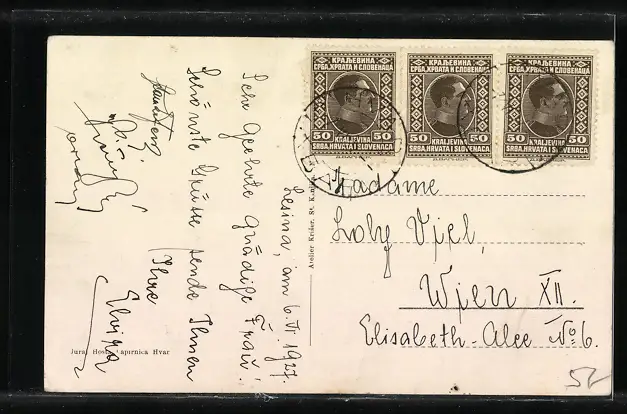 КРАЉЕВИНА
СРБА, ХРВАТА И СЛОВЕНАЦА
50 50
KRALJEVINA
SRBA, HRVATA I SLOVENACA
КРАЉЕВИНА
СРБА, ХРВАТА И СЛОВЕНАЦА
50 50
KRALJEVINA
SRBA, HRVATA I SLOVENACA
КРАЉЕВИНА
СРБА, ХРВАТА И СЛОВЕНАЦА
50 50
KRALJEVINA
SRBA, HRVATA I SLOVENACA
Lesina, am 6. VI. 1927.
Sehr Geehrte gnädige Frau!
Schönste Grüsse sende Ihnen
Ihre
Elvira
Atelier Krišer, St.
Madame
Loly Vjel,
Wjen XII.
Elisabeth-Alee No 6.
Jura Hvar
52